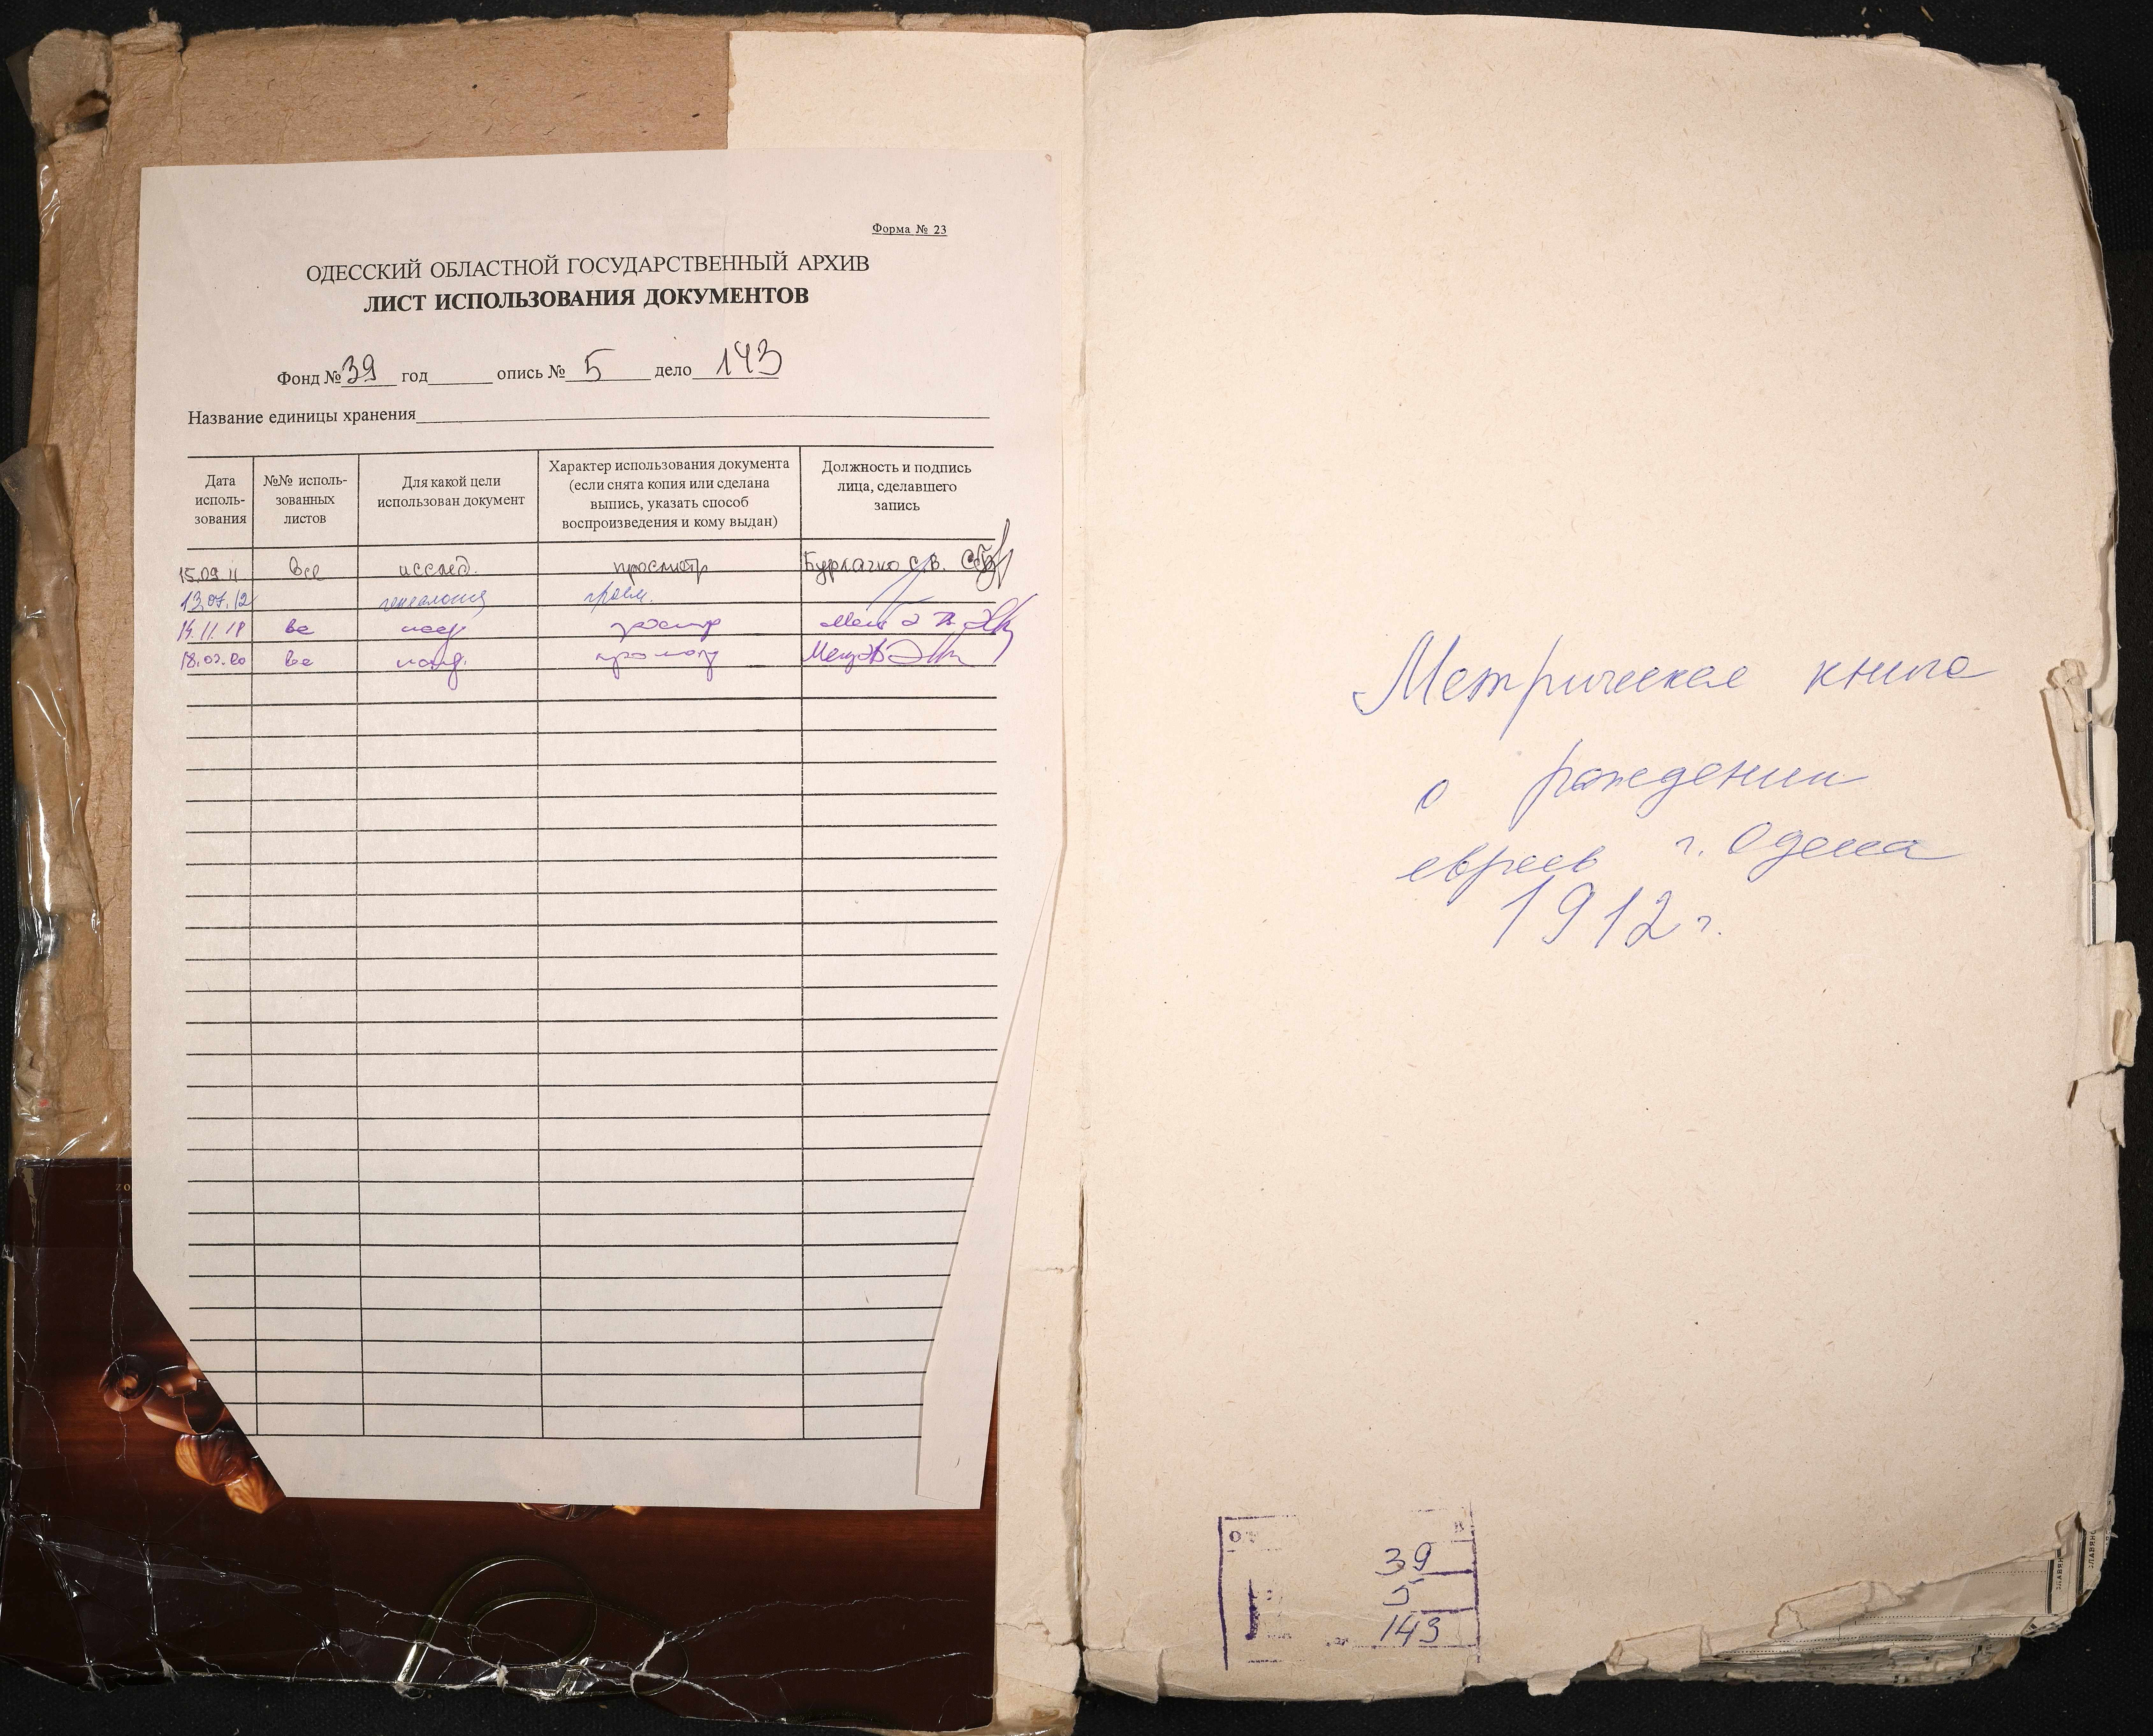 Форма № 23
ОДЕССКИЙ ОБЛАСТНОЙ ГОСУДАРСТВЕННЫЙ АРХИВ
ЛИСТ ИСПОЛЬЗОВАНИЯ ДОКУМЕНТОВ
Фонд № 39 год опись № 5 дело 143
Название единицы хранения
Дата исполь- зования
№№ исполь- зованных листов
Для какой цели использован документ
Характер использования документа (если снята копия или сделана выпись, указать способ воспроизведения и кому выдан)
Должность и подпись лица, сделавшего запись
15.09.11 Все исслед. просмотр Бурлачко С.В.
13.07.12 генеалогия
14.11.18 все
18.02.20 все
Метрическая книга
о рождении
евреев г. Одесса
1912 г.
39
5
143